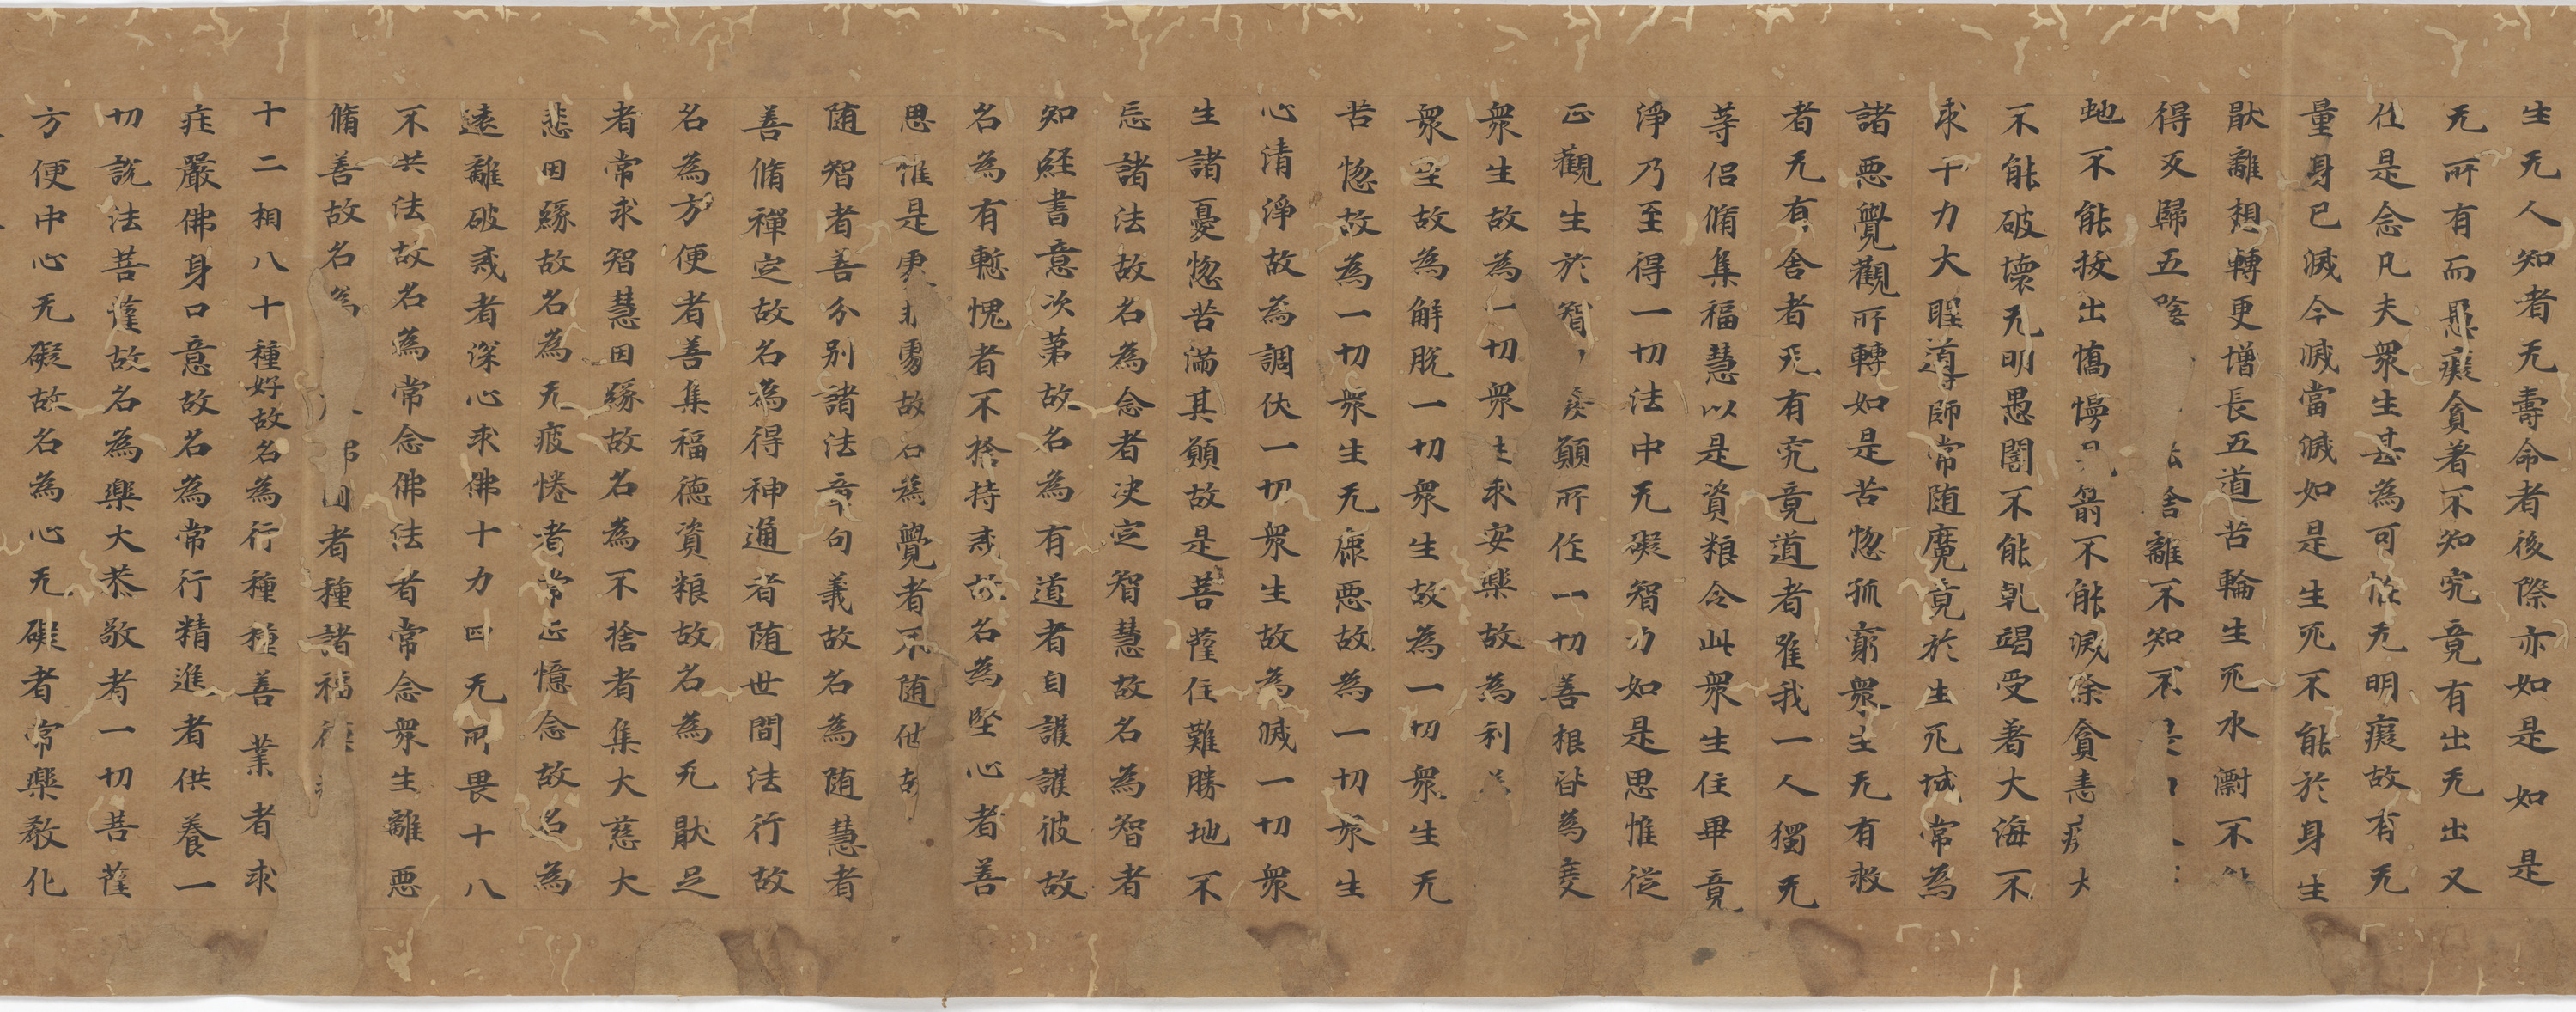 生无人知者无壽命者後際亦如是如是
无所有而愚癡貪著不知究竟有出无出又
住是念凡夫衆生甚為可恠无明癡故有无
量身已滅今滅當滅如是生死不能於身生
猒離想轉更增長五道苦輪生死水漸不
得叉歸五陰 舍離不知不
虵不能拔出憍慢 箭不能滅除貪恚 大
不能破壞无明愚闇不能乹竭受著大海不
求十力大聖導師常随魔竟於生死城常為
諸惡覺觀所轉如是苦惚孤窮衆生无有救
者无有舍者无有究竟道者唯我一人獨无
等侣脩集福慧以是資粮令此衆生住畢竟
淨乃至得一切法中无礙智力如是思惟從
正觀生於智 願所作一切善根皆為度
衆生故為一切衆 求安樂故為利
衆生故為解脫一切衆生故為一切衆生无
苦惚故為一切衆生无㢘惡故為一切衆生
心清淨故為調伏一切衆生故為滅一切衆
生諸憂惚苦滿其願故是菩薩住難勝地不
忘諸法故名為念者决定智慧故名為智者
知經書意次第故名為有道者自護護彼故
名為有慙愧者不捨持戒故名為堅心者善
思惟是處非處故名為覺者不随他故
随智者善分别諸法章句義故名為随慧者
善脩禪定故名為得神通者随世間法行故
名為方便者善集福德資粮故名為无猒足
者常求智慧因緣故名為不捨者集大慈大
悲因緣故名為无疲惓者常正憶念故名為
遠離破戒者深心求佛十力四无所畏十八
不共法故名為常念佛法者常念衆生離惡
脩善故名為 者種諸福德
十二相八十種好故名為行種種善業者求
莊嚴佛身口意故名為常行精進者供養一
切說法菩薩故名為樂大恭敬者一切菩薩
方便中心无礙故名為心无礙者常樂教化